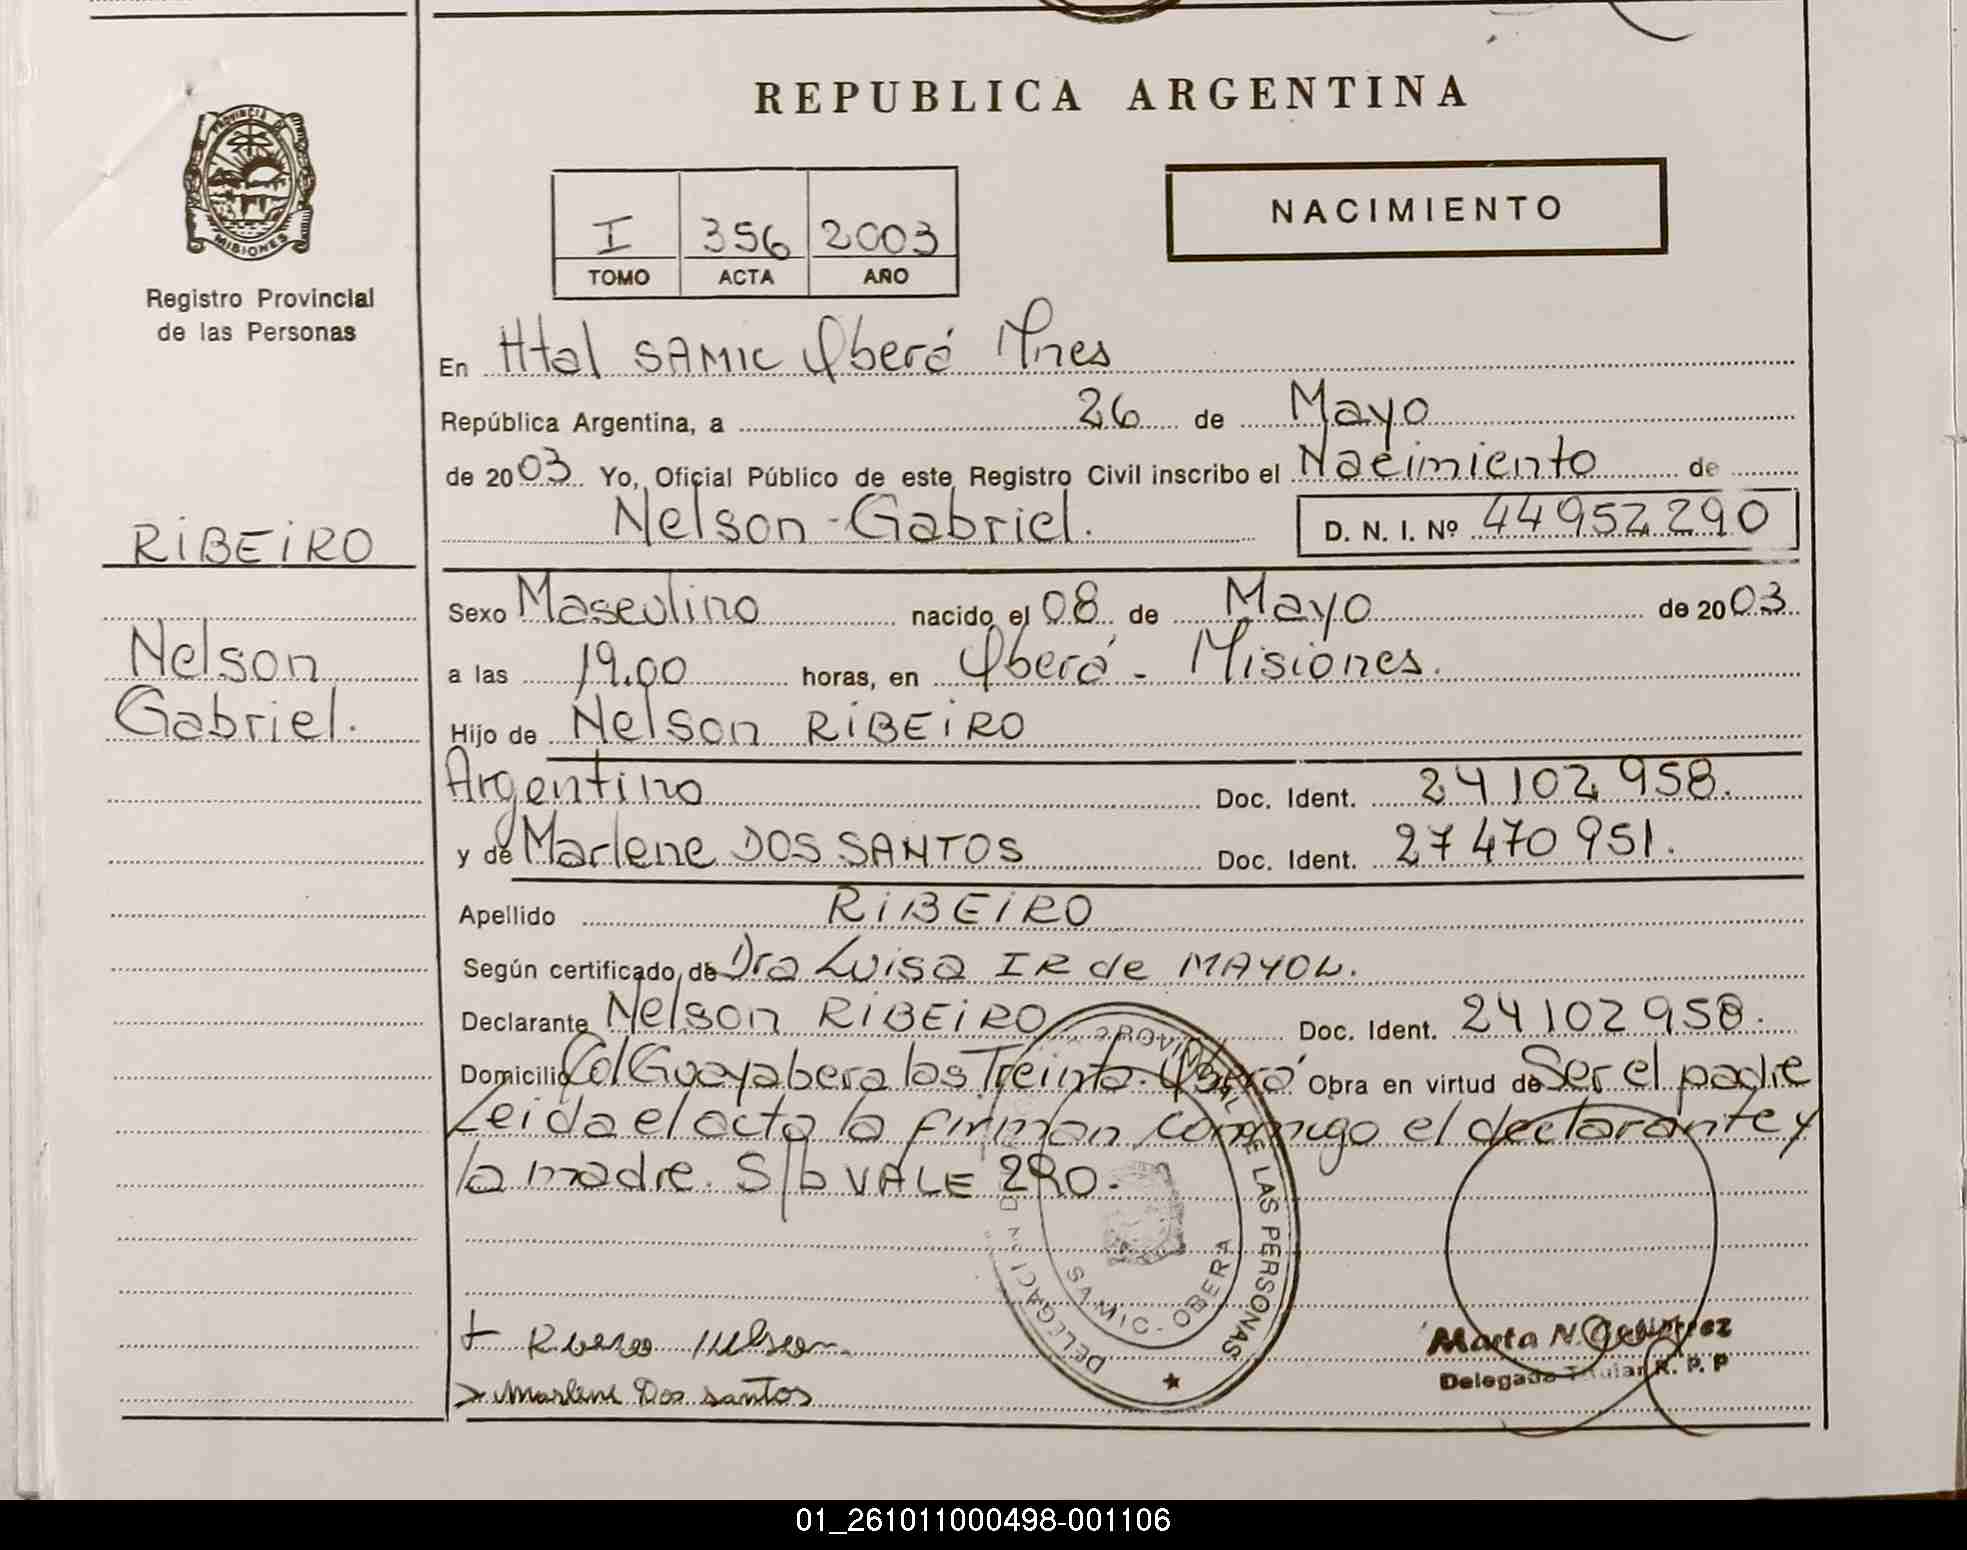 REPUBLICA ARGENTINA
PROVINCIA DE
MISIONES
Registro Provincial
de las Personas
I 356 2003
TOMO ACTA AÑO
NACIMIENTO
En Htal SAMIC Oberá Mnes
República Argentina, a 26 de Mayo
de 2003 Yo, Oficial Público de este Registro Civil inscribo el Nacimiento de
Nelson - Gabriel. D. N. I. Nº 44952290
RIBEIRO
Nelson
Gabriel.
Sexo Masculino nacido el 08 de Mayo de 2003
a las 19.00 horas, en Oberá - Misiones.
Hijo de Nelson RIBEIRO
Argentino Doc. Ident. 24102958.
y de Marlene DOS SANTOS Doc. Ident. 27470951.
Apellido RIBEIRO
Según certificado de Dra Luisa IR de MAYOL.
Declarante Nelson RIBEIRO Doc. Ident. 24102958.
Domicilio Col Guayabera las Treinta. Oberá Obra en virtud de Ser el padre
Leida el acta la firman conmigo el declarante y
la madre. S/b VALE 290.
PROVINCIAL DE LAS PERSONAS
DELEGACION
SAMIC - OBERA
Ribeiro Nelson
Marlene Dos santos
Marta N. Gutierrez
Delegado Titular R. P. P
01_261011000498-001106